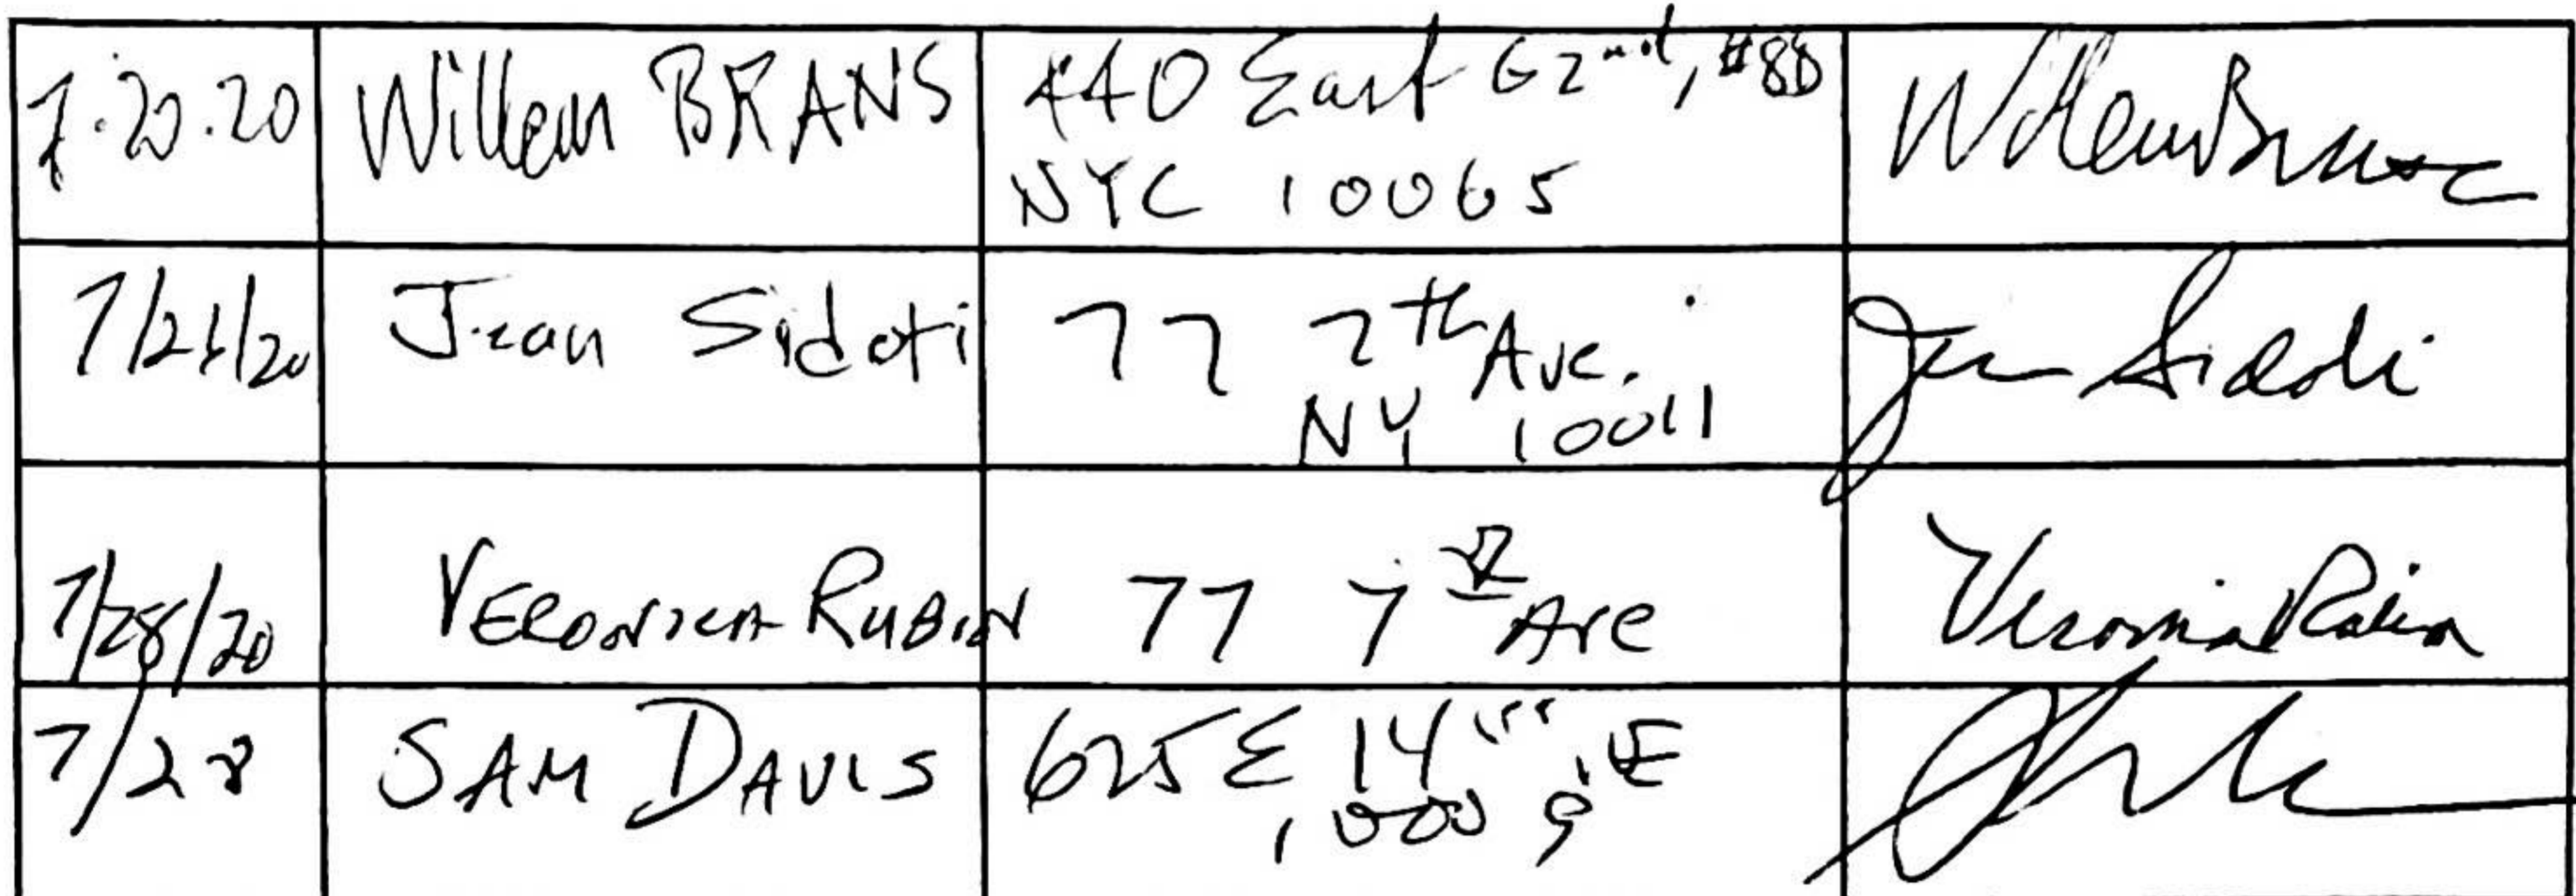 7.20.20 Willem BRANS 440 East 62nd, #8B
NYC 10065
Willem Brans
7/21/20 Jean Sidoti 77 7th Ave.
NY 10011
Jean Sidoti
7/28/20 VERONICA RUBIN 77 7th Ave
Veronica Rubin
7/28 SAM DAVIS 625 E 14th
10009